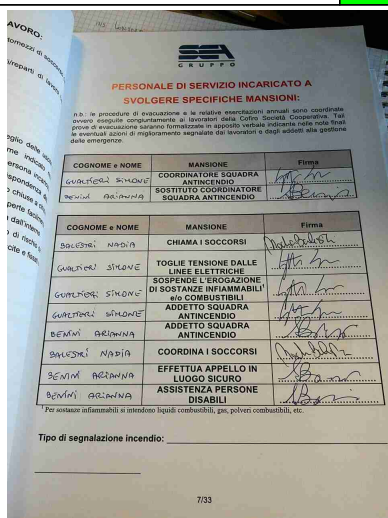 AVORO:
SEA
GRUPPO
PERSONALE DI SERVIZIO INCARICATO A
SVOLGERE SPECIFICHE MANSIONI:
n.b.: le procedure di evacuazione e le relative esercitazioni annuali sono coordinate
ovvero eseguite congiuntamente ai lavoratori della Cofiro Società Cooperativa. Tali
prove di evacuazione saranno formalizzate in apposito verbale indicante nelle note finali
le eventuali azioni di miglioramento segnalate dai lavoratori e dagli addetti alla gestione
delle emergenze.
COGNOME e NOME MANSIONE Firma
GUALTIERI SIMONE COORDINATORE SQUADRA
ANTINCENDIO
BENINI ARIANNA SOSTITUTO COORDINATORE
SQUADRA ANTINCENDIO
COGNOME e NOME MANSIONE Firma
BALESTRI NADIA CHIAMA I SOCCORSI
GUALTIERI SIMONE TOGLIE TENSIONE DALLE
LINEE ELETTRICHE
GUALTIERI SIMONE SOSPENDE L'EROGAZIONE
DI SOSTANZE INFIAMMABILI¹
e/o COMBUSTIBILI
GUALTIERI SIMONE ADDETTO SQUADRA
ANTINCENDIO
BENINI ARIANNA ADDETTO SQUADRA
ANTINCENDIO
BALESTRI NADIA COORDINA I SOCCORSI
BENINI ARIANNA EFFETTUA APPELLO IN
LUOGO SICURO
BENINI ARIANNA ASSISTENZA PERSONE
DISABILI
¹ Per sostanze infiammabili si intendono liquidi combustibili, gas, polveri combustibili, etc.
Tipo di segnalazione incendio:
7/33